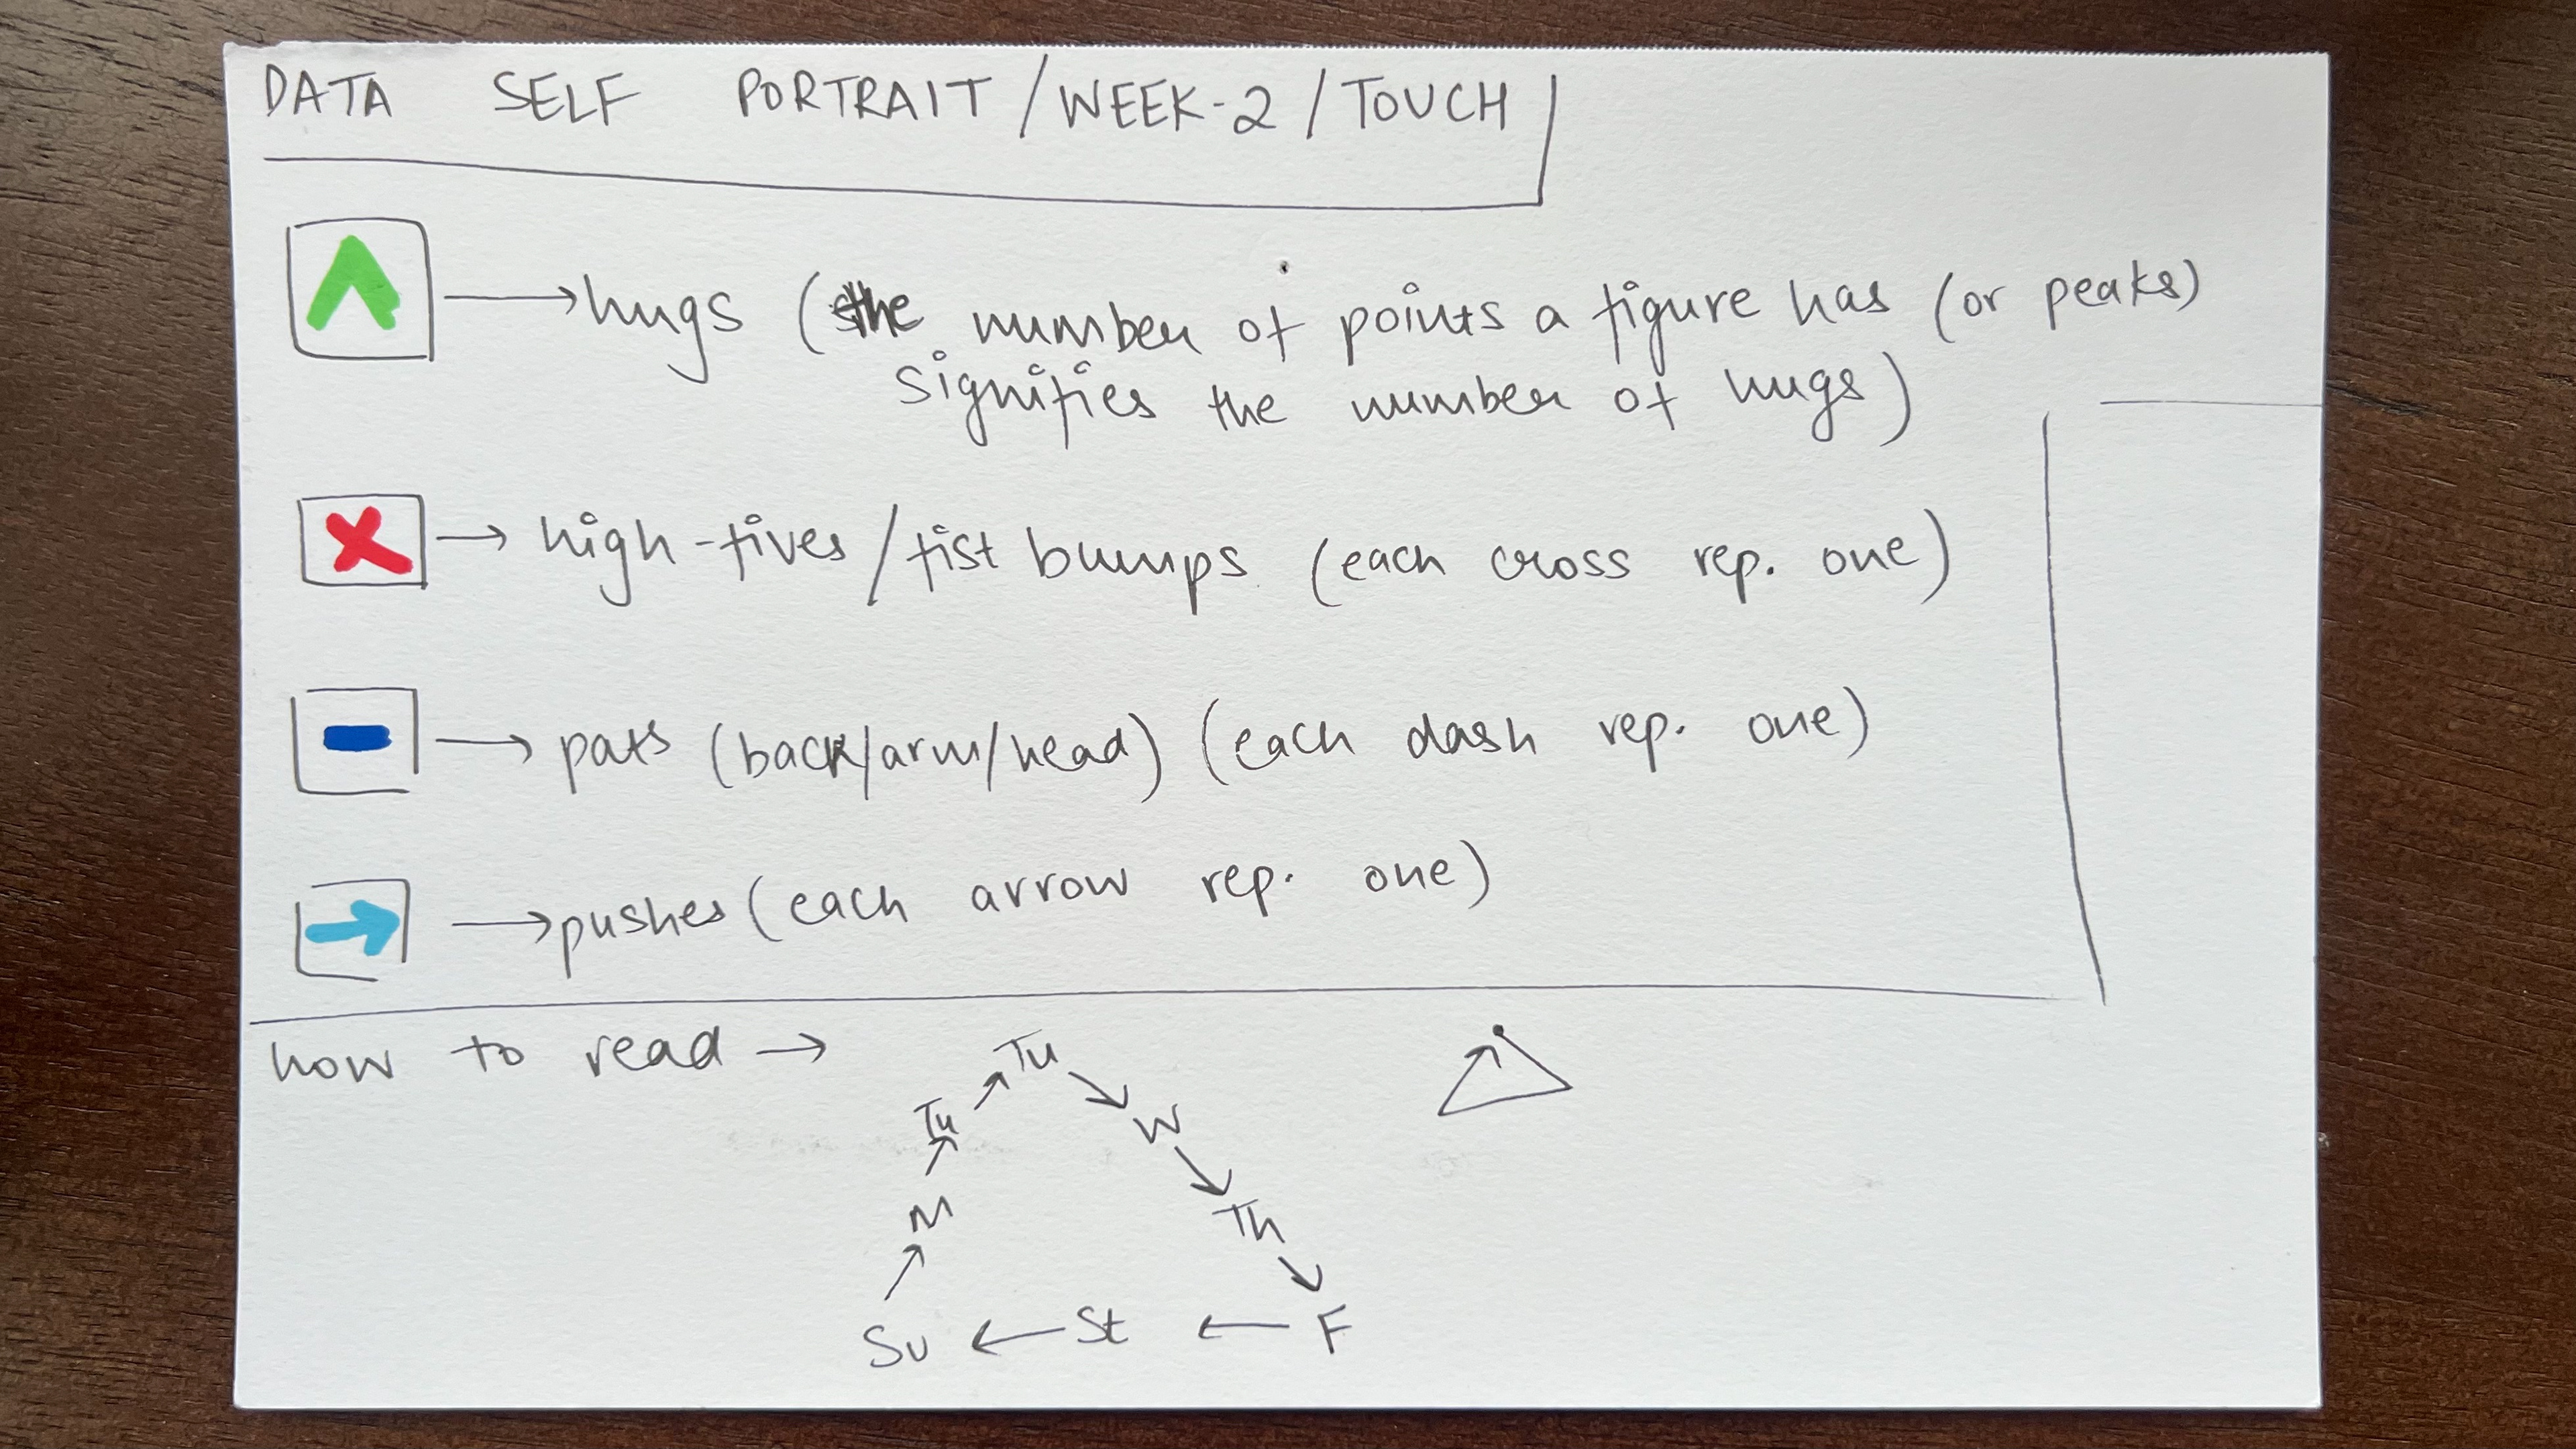 DATA SELF PORTRAIT / WEEK-2 / TOUCH
hugs (the number of points a figure has (or peaks)
signifies the number of hugs)
high-fives / fist bumps (each cross rep. one)
pats (back/arm/head) (each dash rep. one)
pushes (each arrow rep. one)
how to read →
Tu
Tu
W
M
Th
Su ← St ← F